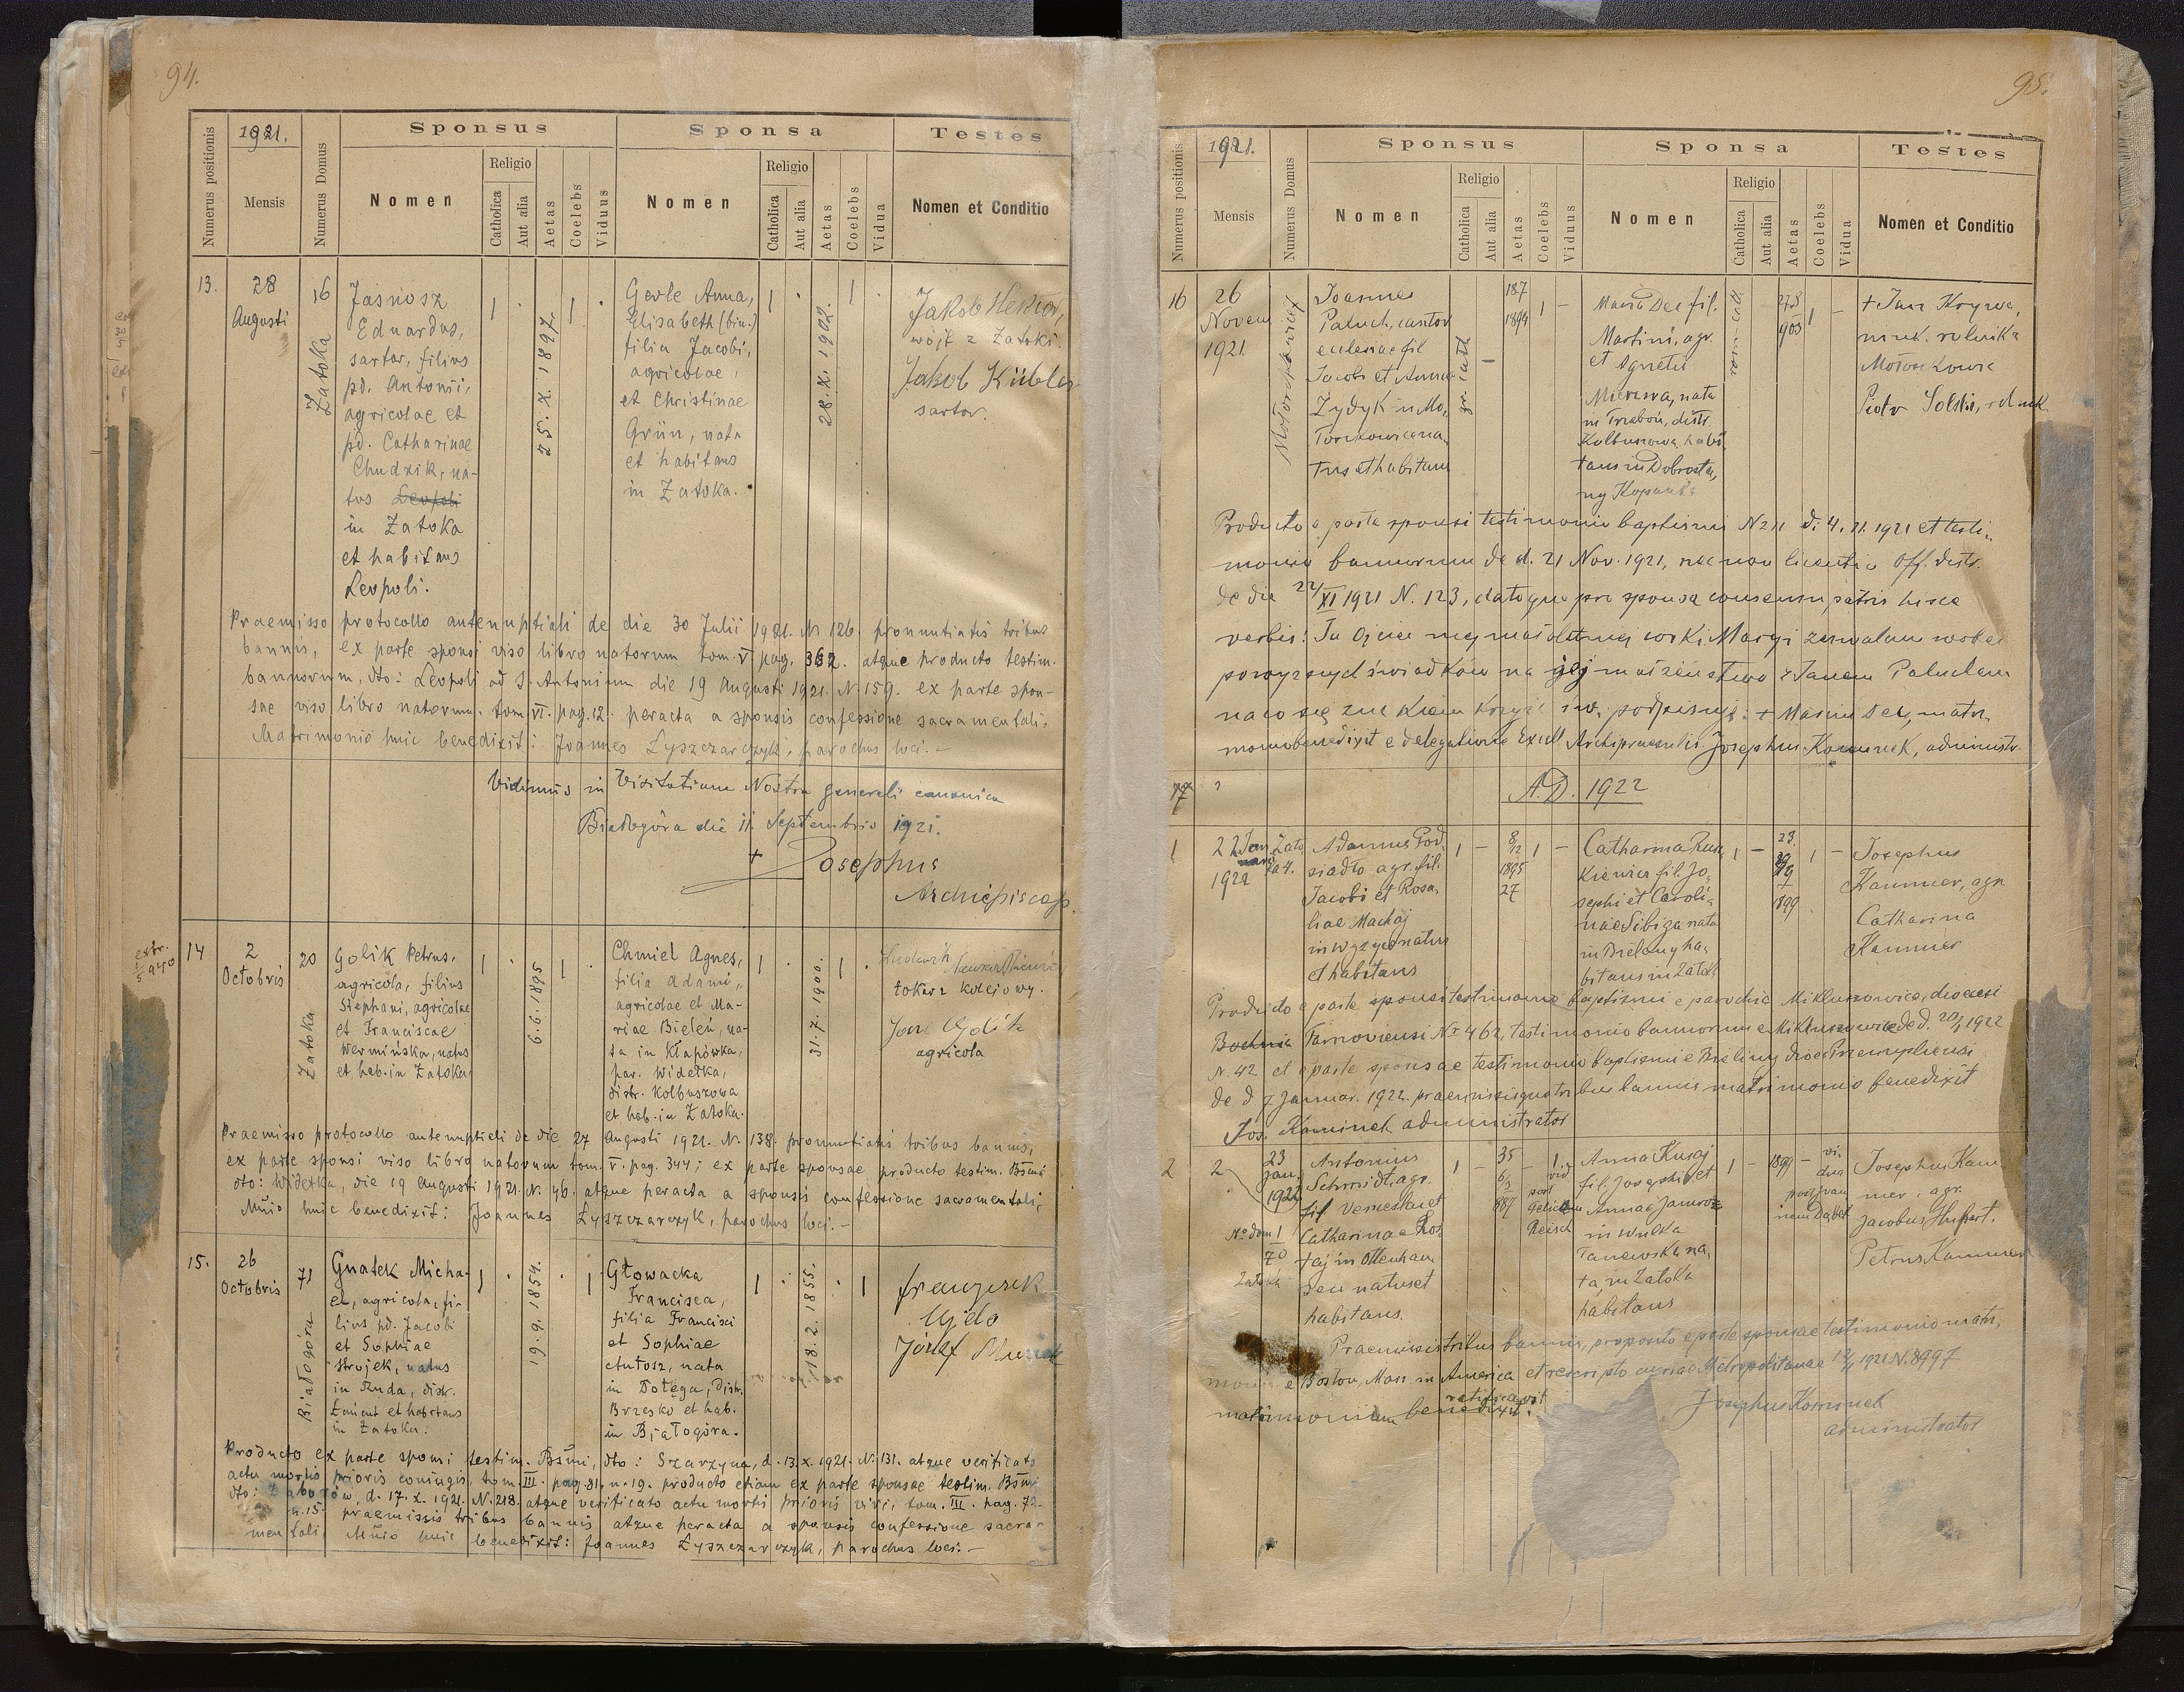 94.
Numerus positionis
1921.
Mensis
Numerus Domus
Sponsus
Nomen
Religio
Catholica
Aut alia
Aetas
Coelebs
Viduus
Sponsa
Nomen
Religio
Catholica
Aut alia
Aetas
Coelebs
Vidua
Testes
Nomen et Conditio
13.
28
Augusti
16
Zatoka
Jasnosz
Eduardus,
sartor, filius
pd. Antonii,
agricolae et
pd. Catharinae
Chudzik, na-
tus Leopoli
in Zatoka
et habitans
Leopoli.
1 . 25. X. 1897. 1 .
Gerle Anna,
Elisabeth (bin.)
filia Jacobi,
agricolae,
et Christinae
Grün, nata
et habitans
in Zatoka.
1 . 28. X. 1902. 1 .
Jakob
wójt z Zatoki.
Jakob Kübler
sartor.
Praemisso protocollo antenuptiali de die 30 Julii 1921. N 126. pronuntiatis tribus
bannis, ex parte sponsi viso libro natorum tom. V pag. 362. atque producto testim.
bannorum, dto: Leopoli ad S. Antonium die 19 Augusti 1921. N. 159. ex parte spon-
sae viso libro natorum. tom. VI. pag. 12. peracta a sponsis confessione sacramentali,
Matrimonio huic benedixit: Joannes Łyszczarczyk, parochus loci. -
Vidimus in Visitatione Nostra generali canonica
Białogóra die 11 Septembris 1921.
+ Josephus
Archiepiscop.
extr.
14
2
Octobris
20
Zatoka
Golik Petrus,
agricola, filius
Stephani, agricolae
et Franciscae
Wermińska, natus
et hab. in Zatoka.
1 . 6. 6. 1895 1 .
Chmiel Agnes,
filia Adami,
agricolae et Ma-
riae Bieleń, na-
ta in Kłapówka,
par. Widełka,
distr. Kolbuszowa
et hab. in Zatoka.
1 . 31. 7. 1900. 1 .
tokarz kolejowy.
Jan Golik
agricola
Praemisso protocollo antenuptiali de die 27 Augusti 1921. N. 138. pronuntiatis tribus bannis,
ex parte sponsi viso libro natorum tom. V. pag. 344; ex parte sponsae producto testim. Bsmi
dto: Widełka, die 19 Augusti 1921. N. 46. atque peracta a sponsis confessione sacramentali,
Mnio huic benedixit: Joannes Łyszczarczyk, parochus loci. -
15.
26
Octobris
71
Białogóra
Gnatek Micha-
el, agricola, fi-
lius pd. Jacobi
et Sophiae
Strojek, natus
in Ruda, distr.
Łańcut et habitans
in Zatoka.
1 . 19. 9. 1854. . 1
Głowacka
Francisca,
filia Francisci
et Sophiae
nata
in Dołęga, distr.
Brzesko et hab.
in Białogóra.
1 . 18. 2. 1855. . 1
Franciszek
Józef
Producto ex parte sponsi testim. Bsmi, dto: Szarzyna, d. 13. X. 1921. N. 131. atque verificato
actu mortis prioris coniugis, tom. III. pag. 81. n. 19. producto etiam ex parte sponsae testim. Bsmi
dto: Zaborów, d. 17. X. 1921. N. 218. atque verificato actu mortis prioris viri, tom. III. pag. 72.
n. 15. praemissis tribus bannis atque peracta a sponsis confessione sacra-
mentali, Mnio huic benedixit: Joannes Łyszczarczyk, parochus loci. -
95.
Numerus positionis
1921.
Mensis
Numerus Domus
Sponsus
Nomen
Religio
Catholica
Aut alia
Aetas
Coelebs
Viduus
Sponsa
Nomen
Religio
Catholica
Aut alia
Aetas
Coelebs
Vidua
Testes
Nomen et Conditio
16
26
Novem
1921.
Joannes
Paluch, cantor
ecclesiae fil
Jacobi et Annae
Zydyk in Mo,
toszkowice na,
tus et habitans
gr. cath
1894 1 -
Maria Dec fil.
Martini, agr.
et Agnetis
Mierzwa, nata
in Trzeboń, distr.
Kolbuszowa, habi
tans in Dobrosta,
ny Kopanka
903 1 -
+ Jan Krzywa,
rolnik z
Piotr Solski, rolnik
Producto e parte sponsi testimonio baptismi N 211 d. 4. 11. 1921 et testi,
monio bannorum de d. 21 Nov. 1921, nec non licentia Off. distr.
de die 22/XI 1921 N. 123, datoque pro sponsa consensu patris hisce
verbis: Ja ojciec mej małoletniej córki Maryi zezwalam wobec
powyższych świadków na jej małżeństwo z Janem Paluchem
na co się znakiem krzyża św. podpisuję: + Marcin Dec, matri,
monio benedixit e delegatione Excell. Archipraesulis Josephus Kominek, administr.
17 ?
A.D. 1922
1
22 Jan
1922
Zato
ka 4.
Adamus Pod,
siadło agr. fil.
Jacobi et Rosa,
liae Machaj
in Wyżyce natus
et habitans
1 - 8/12 1895 27 1 -
Catharina Rusz
kiewicz fil. Jo,
sephi et Caroli,
nae Sibiga nata
in Bieliny ha,
bitans in Zatok
1 - 23. 899 1 -
Josephus
Kammer, agr
Catharina
Kammer
Producto e parte sponsi testimonio baptismi e parochia Mikluszowice, diocesi
Bochnia Tarnoviensi N 462, testimonio bannorum e Mikluszowice de d. 20/1 1922
N. 42 et e parte sponsae testimonio baptismi e Bieliny dioec Przemysliensi
de d 7 Januar. 1922. praemissisque tribus bannis matrimonio benedixit
Jos. Kominek administrator
2
2
23
Jan.
1922
No dom 1
70
Zatoka
Antonius
Schmidt, agr.
fil. Venceslai et
Catharinae Ros
taj in Ottenhau
sen natus et
habitans.
1 - 35 6/3 887 - 1
vid
post
Reisch
Anna Kusaj
fil. Josephi et
Annae Jamroz
in Wulka
Tanewska na,
ta, in Zatoka
habitans
1 - 1899 - vi,
dua
post Joan
nem
Josephus Kam
mer, agr.
Jacobus Hubert.
Petrus Kammer
Praemissis tribus bannis, proposito e parte sponsae testimonio matri,
monii e Boston, Mass. in America et rescripto curiae Metropolitanae 1921 N. 8997
ratificavit
matrimonium benedixit.
Josephus Kominek
administrator